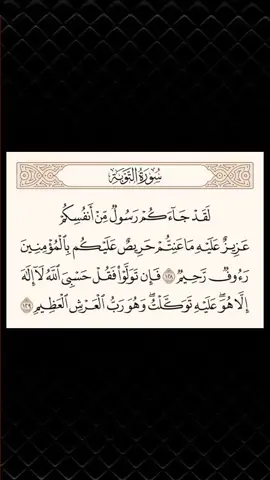 سُورَةُ التَّوْبَةِ
لَقَدْ جَاءَكُمْ رَسُولٌ مِّنْ أَنفُسِكُمْ
عَزِيزٌ عَلَيْهِ مَا عَنِتُّمْ حَرِيصٌ عَلَيْكُم بِالْمُؤْمِنِينَ
رَءُوفٌ رَّحِيمٌ ١٢٨ فَإِن تَوَلَّوْا فَقُلْ حَسْبِيَ اللَّهُ لَا إِلَٰهَ
إِلَّا هُوَ ۖ عَلَيْهِ تَوَكَّلْتُ ۖ وَهُوَ رَبُّ الْعَرْشِ الْعَظِيمِ ١٢٩